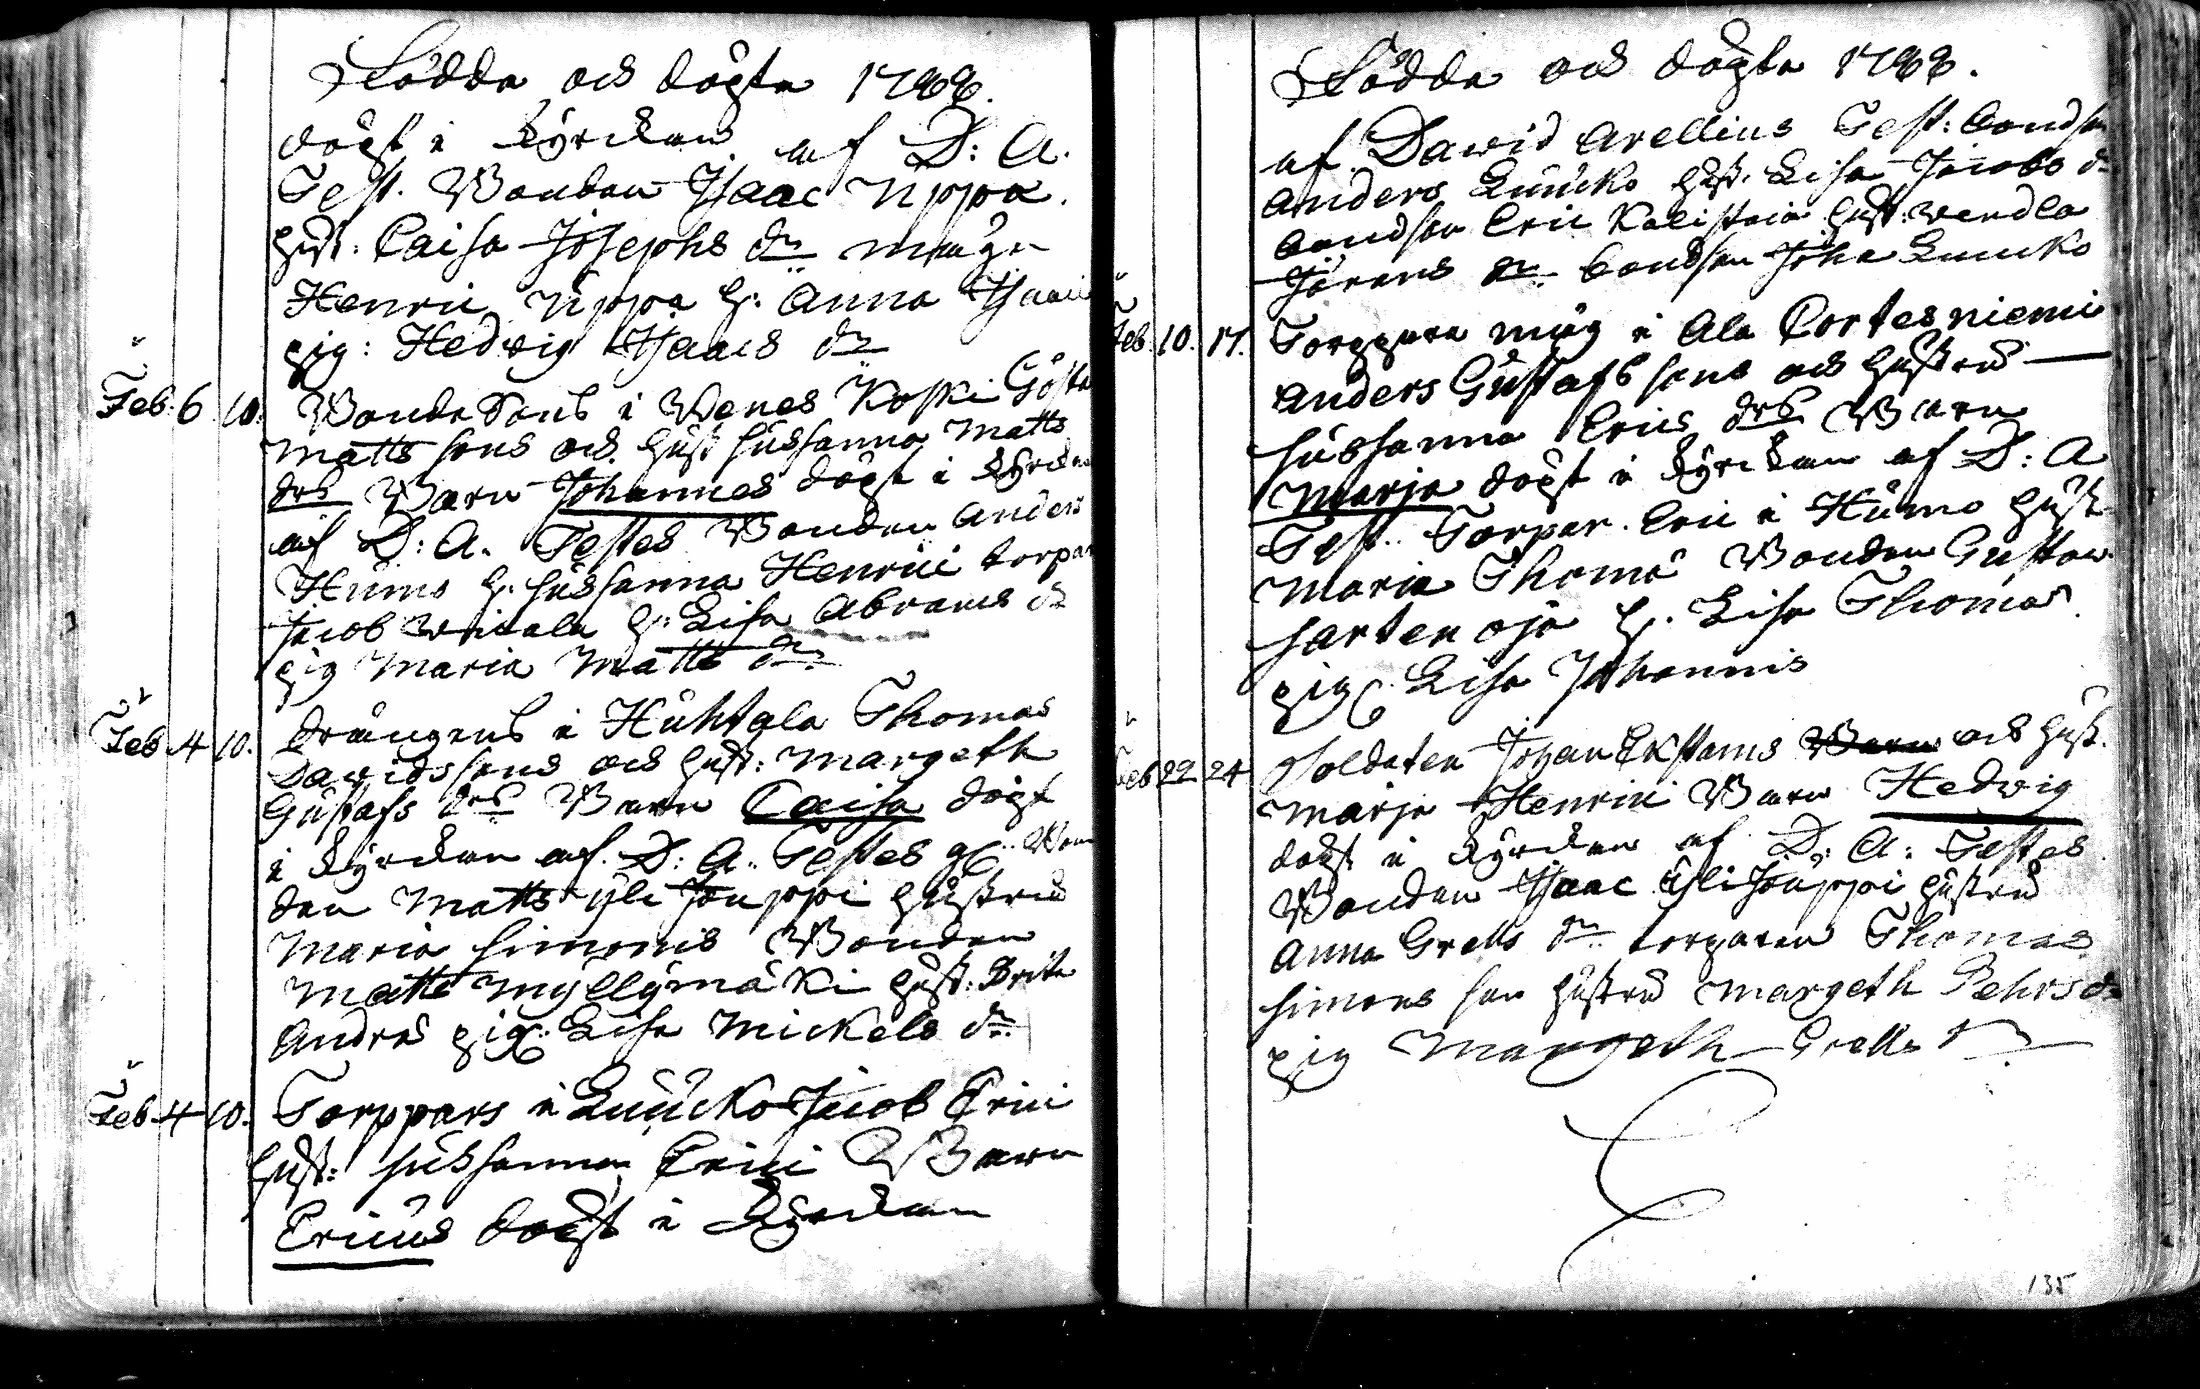 Födda och döpte 1788.
döpt i Kyrckan af D: A.
Test. Bonden Isaac Uppa.
hust: Caisa Josephs dr måg
Henric Uppa h: Anna Isaac
pig: Hedvig Isaacs dr
Feb. 6 10. Bonde Sons i Wenes Koski Gösta
Matts sons och hust Sussanna Matts
drs Barn Johannes döpt i Kyrckan
af D: A. Testes Bonden Anders
Humo h. Sussanna Henrici torpar
Jacob h: Lisa Abrams dr
pig Maria Matts dr
Feb 4 10. Drängens i Huhtala Thomas
Davidssons och hust: Margeth
Gustafs drs Barn Caisa döpt
i Kyrckan af. D: A. Testes Bon
den Matts yli Jouppi hustru
Maria Simonis Bonden
Matts Myllymäki hust: Brita
Andrs pig: Lisa Mickels dr
Feb 4 10. Torppars i Luucko Jacob Erici
hust: Sussanna Erici Barn
Ericus döpt i Kyrckan
Födda och döpte 1788.
af David Arellius Test: bondson
Anders Luucko hust. Lisa Jacobs dr
bondson Eric Kalistaia hust: Wendla
Jörans dr bondson Joha Luucko
Feb. 10. 17. Torppare måg i Ala Cortesniemi
Anders Gustafs sons och hustru
Sussanna Erics drs Barn
Marja döpt i Kyrckan af D: A
Test. Torpar. Eric i Humo hust
Maria Thomæ Bonden Gustav
Sartenoja h. Lisa Thomæ
pig. Lisa Johannis
Feb 22 24 Soldaten Johan Ekstams Barn och hust.
Marja Henrici Barn Hedvig
döpt i Kyrckan af D: A: Testes
Bonden Isaac Yli Jouppi hustru
Anna Grells dr torparen Thomas
Simons son hustru Margeth Pehrs dr
pig Margeth Grells dr
135